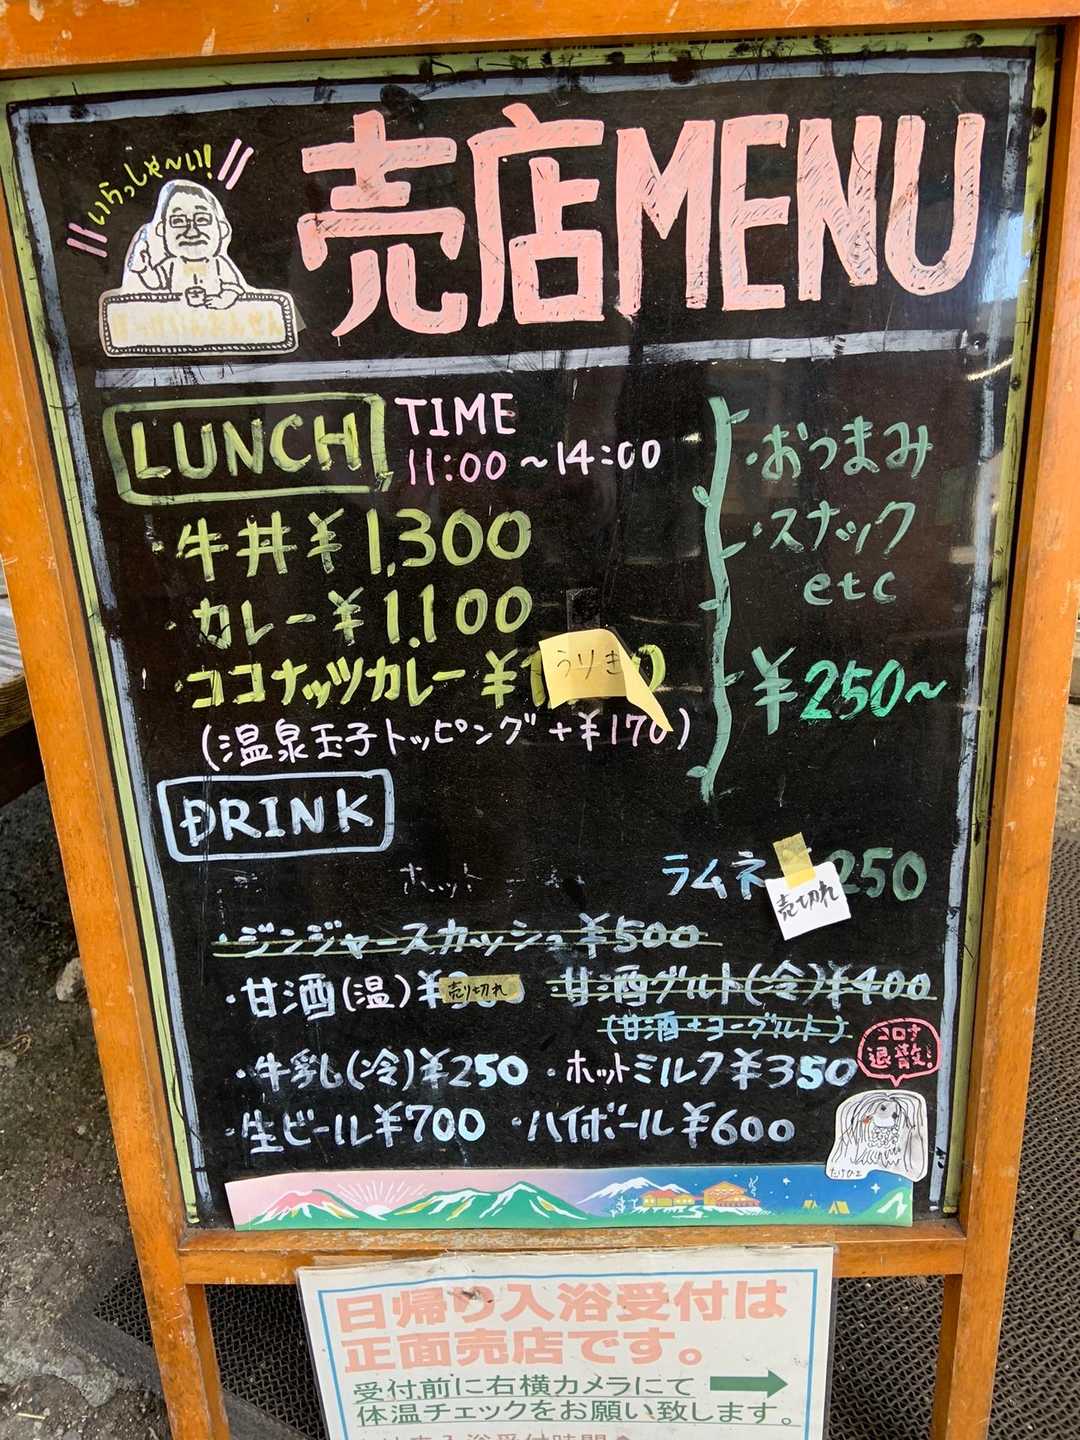 いらっしゃ〜い!
売店MENU
LUNCH
TIME
11:00〜14:00
・牛丼¥1,300
・カレー¥1,100
・ココナッツカレー¥
うりき
(温泉玉子トッピング+¥170)
・おつまみ
・スナック
etc
¥250〜
DRINK
ホット
ラムネ 250
売切れ
・ジンジャースカッシュ¥500
・甘酒(温)¥
売り切れ
甘酒グルト(冷)¥400
(甘酒+ヨーグルト)
・牛乳(冷)¥250 ・ホットミルク¥350
・生ビール¥700 ・ハイボール¥600
コロナ
退散!
たけひこ
日帰り入浴受付は
正面売店です。
受付前に右横カメラにて
体温チェックをお願い致します。